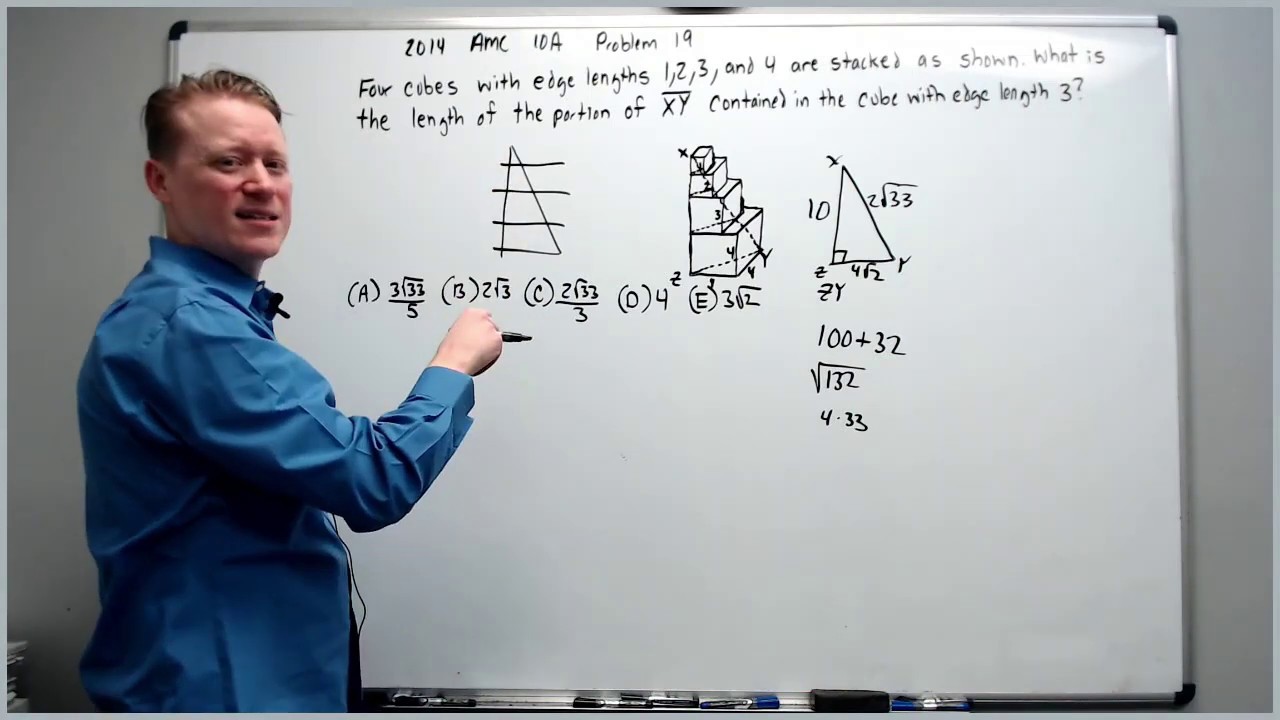 2014 AMC 10A Problem 19
Four cubes with edge lengths 1,2,3, and 4 are stacked as shown. What is
the length of the portion of XY contained in the cube with edge length 3?
X
1
2
3
4
Y
4
4
Z
X
10
2√33
Z
4√2
Y
ZY
(A) 3√33/5 (B) 2√3 (C) 2√33/3 (D) 4 (E) 3√2
100+32
√132
4·33